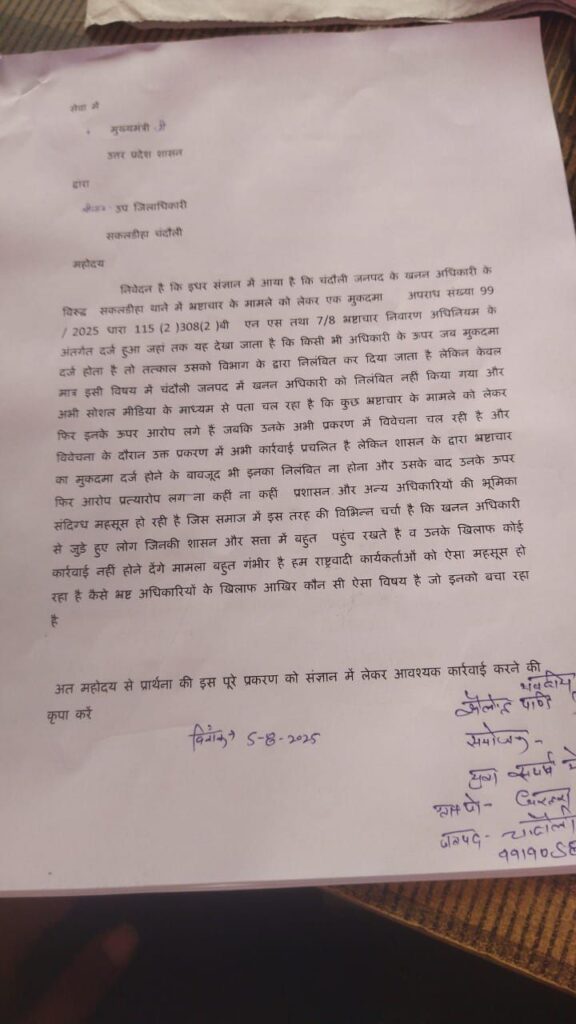 सेवा में
मुख्यमंत्री जी
उत्तर प्रदेश शासन
द्वारा
उप जिलाधिकारी
सकलडीहा चंदौली
महोदय
निवेदन है कि इधर संज्ञान में आया है कि चंदौली जनपद के खनन अधिकारी के
विरुद्ध सकलडीहा थाने में भ्रष्टाचार के मामले को लेकर एक मुकदमा अपराध संख्या 99
/ 2025 धारा 115 (2 )308(2 )बी एन एस तथा 7/8 भ्रष्टाचार निवारण अधिनियम के
अंतर्गत दर्ज हुआ जहां तक यह देखा जाता है कि किसी भी अधिकारी के ऊपर जब मुकदमा
दर्ज होता है तो तत्काल उसको विभाग के द्वारा निलंबित कर दिया जाता है लेकिन केवल
मात्र इसी विषय में चंदौली जनपद में खनन अधिकारी को निलंबित नहीं किया गया और
अभी सोशल मीडिया के माध्यम से पता चल रहा है कि कुछ भ्रष्टाचार के मामले को लेकर
फिर इनके ऊपर आरोप लगे हैं जबकि उनके अभी प्रकरण में विवेचना चल रही है और
विवेचना के दौरान उक्त प्रकरण में अभी कार्रवाई प्रचलित है लेकिन शासन के द्वारा भ्रष्टाचार
का मुकदमा दर्ज होने के बावजूद भी इनका निलंबित ना होना और उसके बाद उनके ऊपर
फिर आरोप प्रत्यारोप लग ना कहीं ना कहीं प्रशासन और अन्य अधिकारियों की भूमिका
संदिग्ध महसूस हो रही है जिस समाज में इस तरह की विभिन्न चर्चा है कि खनन अधिकारी
से जुड़े हुए लोग जिनकी शासन और सत्ता में बहुत पहुंच रखते है व उनके खिलाफ कोई
कार्रवाई नहीं होने देंगे मामला बहुत गंभीर है हम राष्ट्रवादी कार्यकर्ताओं को ऐसा महसूस हो
रहा है कैसे भ्रष्ट अधिकारियों के खिलाफ आखिर कौन सी ऐसा विषय है जो इनको बचा रहा
है
अत महोदय से प्रार्थना की इस पूरे प्रकरण को संज्ञान में लेकर आवश्यक कार्रवाई करने की
कृपा करें
भवदीय
दिनांक 5-8-2025
संयोजक -
युवा संघर्ष
जनपद - चंदौली